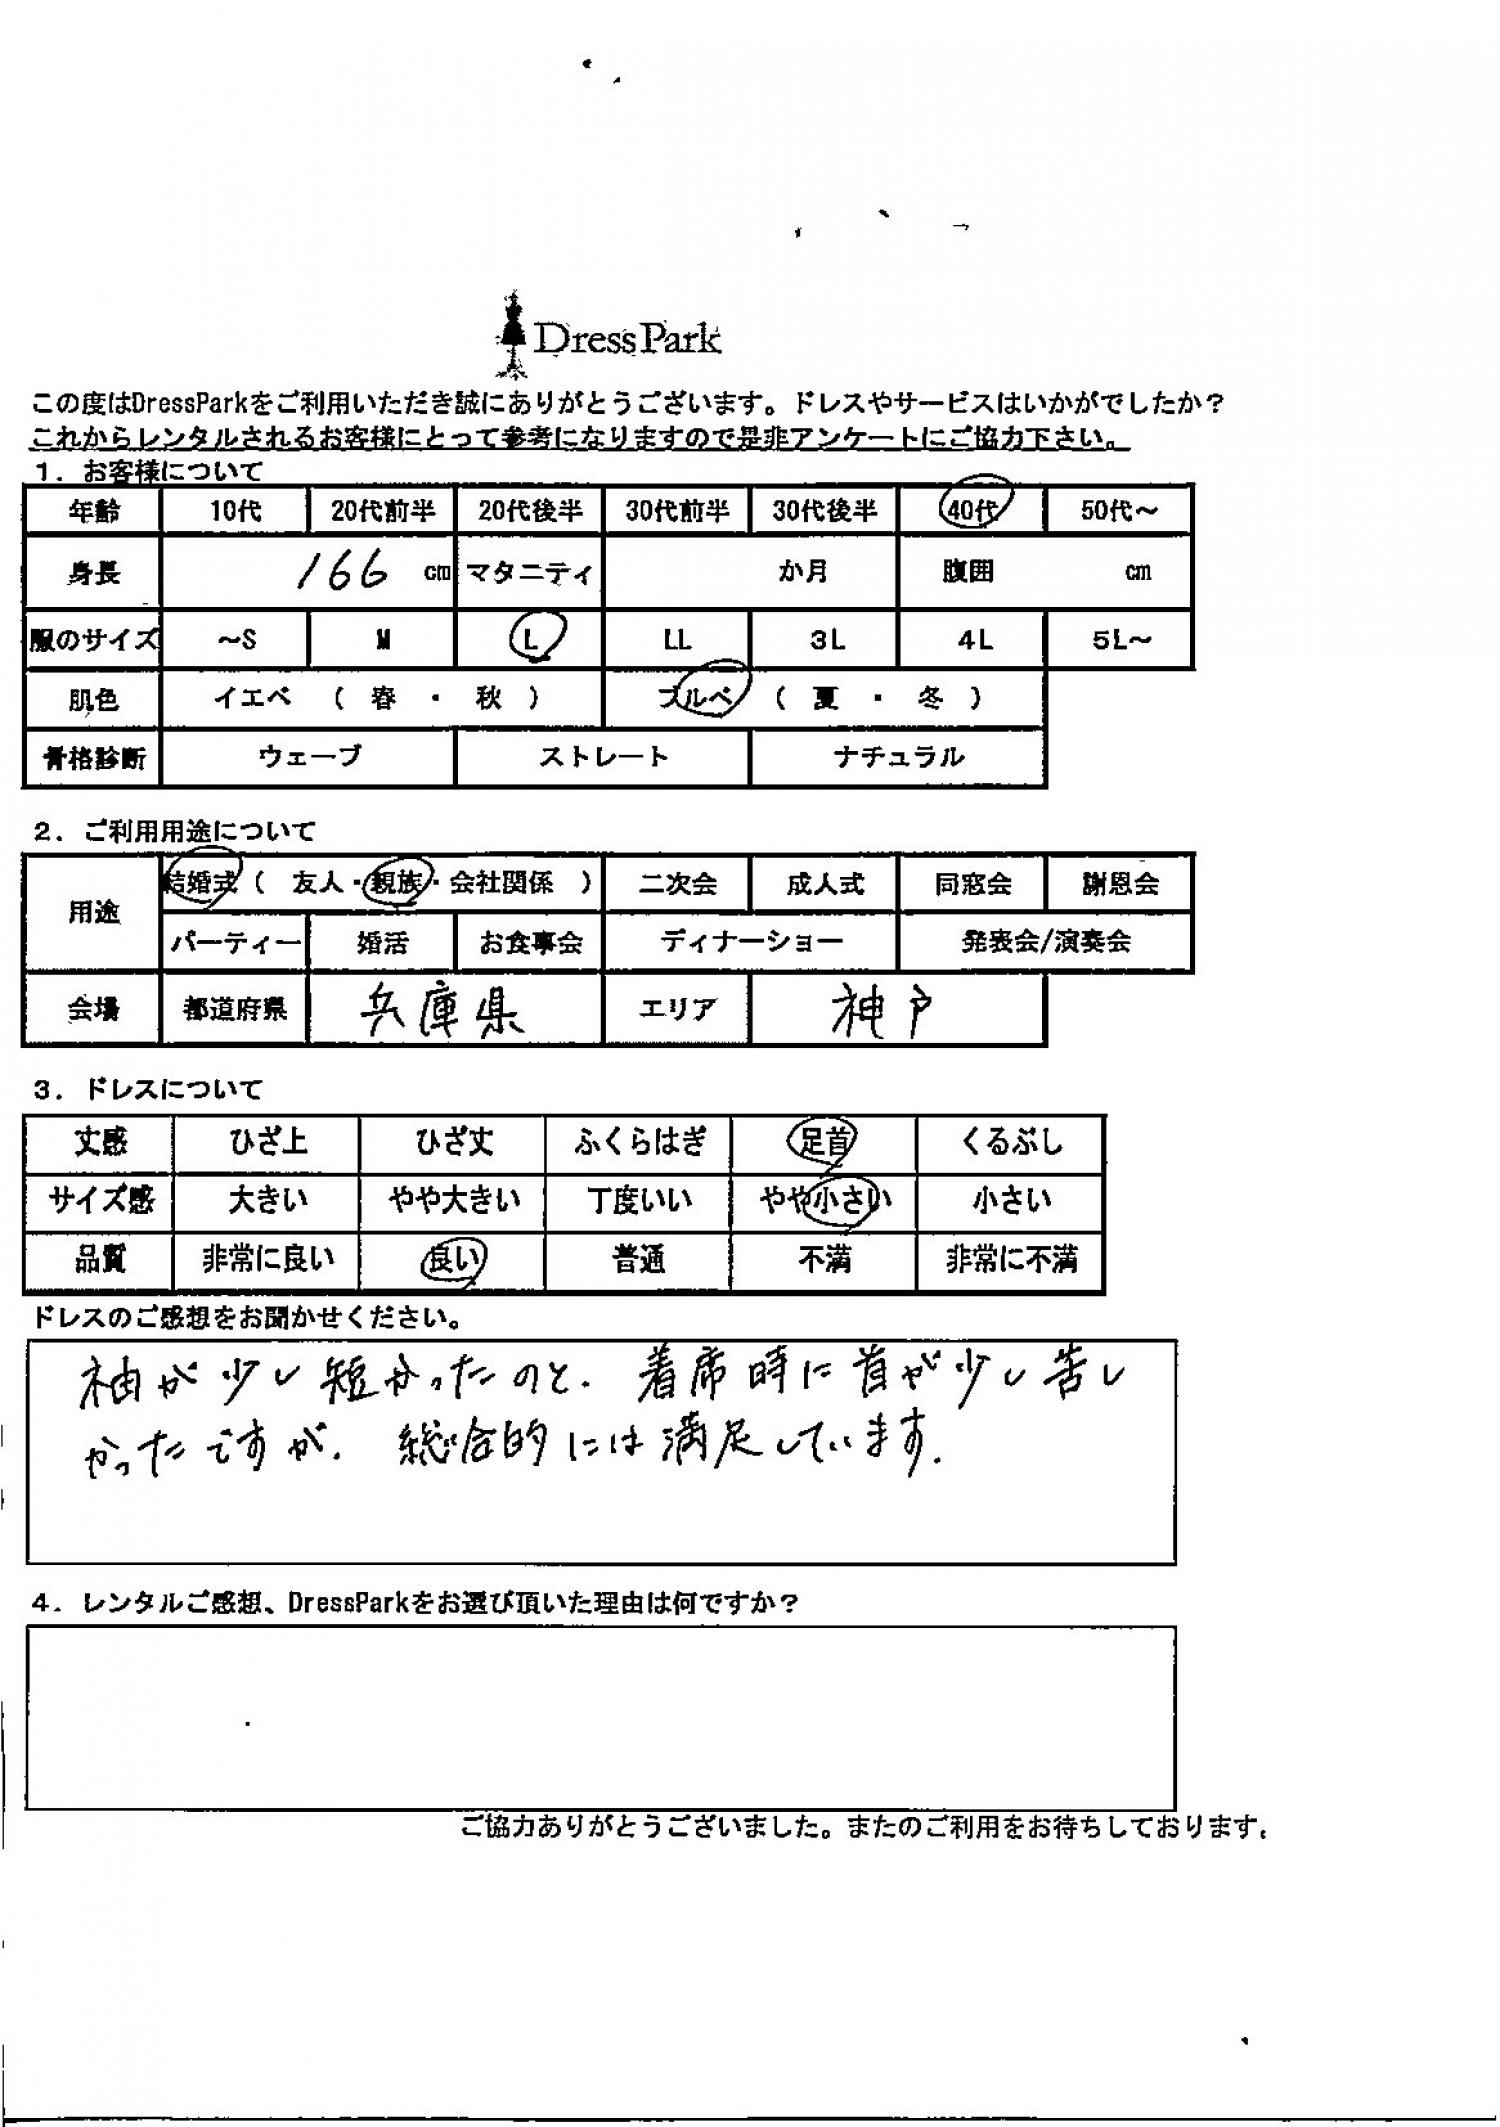 DressPark
この度はDressParkをご利用いただき誠にありがとうございます。ドレスやサービスはいかがでしたか？
これからレンタルされるお客様にとって参考になりますので是非アンケートにご協力下さい。
１．お客様について
年齢 10代 20代前半 20代後半 30代前半 30代後半 40代 50代～
身長 166 cm マタニティ か月 腹囲 cm
服のサイズ ～S M L LL ３L ４L ５L～
肌色 イエベ （ 春 ・ 秋 ） ブルベ （ 夏 ・ 冬 ）
骨格診断 ウェーブ ストレート ナチュラル
２．ご利用用途について
用途 結婚式（ 友人・親族・会社関係 ） 二次会 成人式 同窓会 謝恩会
パーティー 婚活 お食事会 ディナーショー 発表会/演奏会
会場 都道府県 兵庫県 エリア 神戸
３．ドレスについて
丈感 ひざ上 ひざ丈 ふくらはぎ 足首 くるぶし
サイズ感 大きい やや大きい 丁度いい やや小さい 小さい
品質 非常に良い 良い 普通 不満 非常に不満
ドレスのご感想をお聞かせください。
袖が少し短かったのと、着席時に首が少し苦し
かったですが、総合的には満足しています。
４．レンタルご感想、DressParkをお選び頂いた理由は何ですか？
ご協力ありがとうございました。またのご利用をお待ちしております。